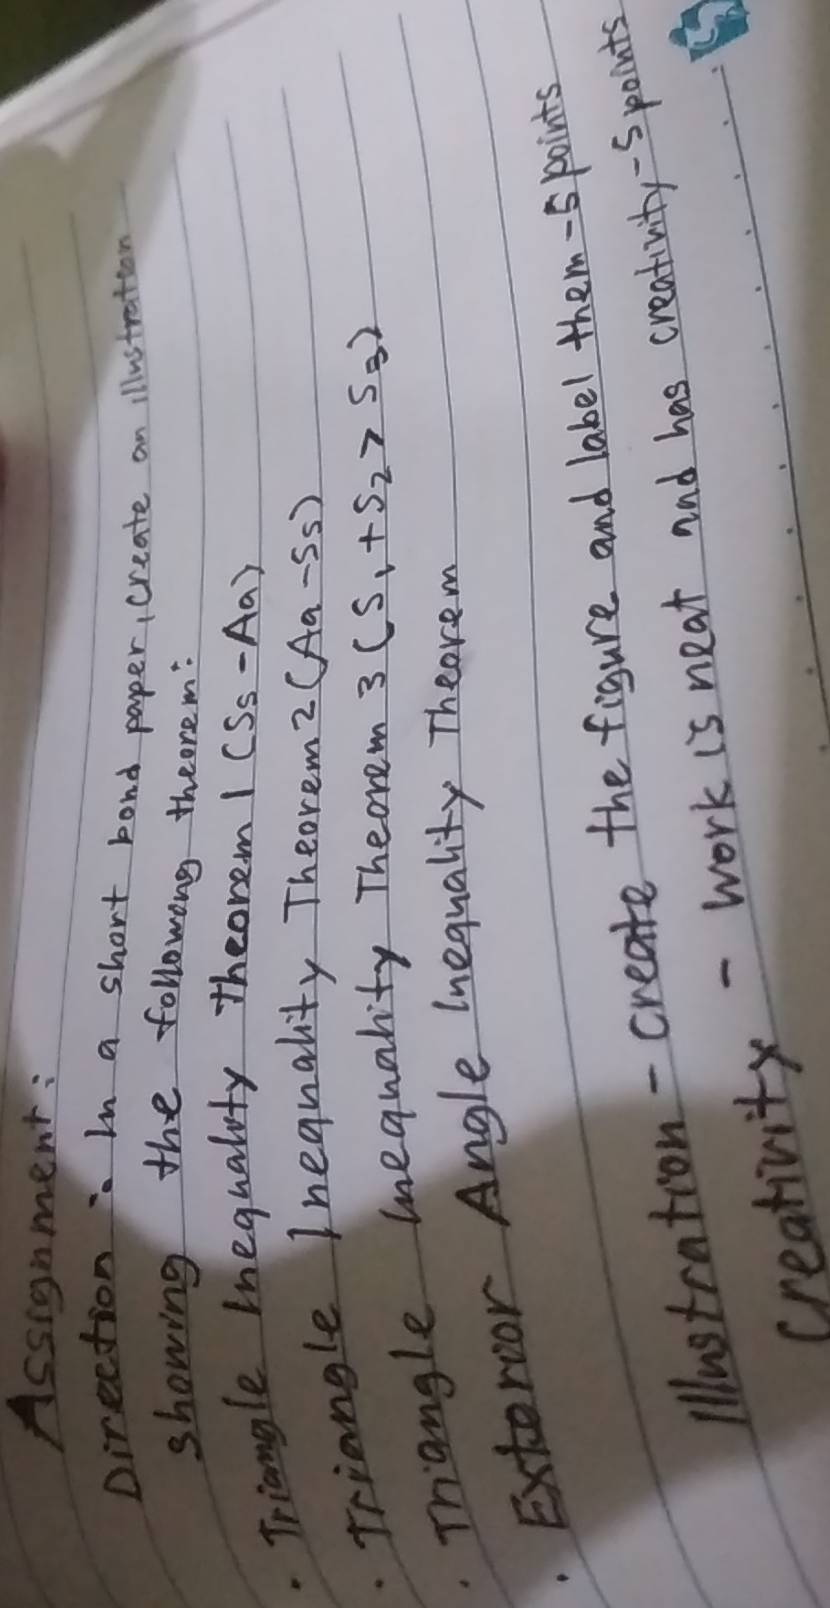 Assignment:
Direction: In a short bond paper, create an illustration
showing the following theorem:
• Triangle Inequality Theorem 1 (Ss - Aa)
• Triangle Inequality Theorem 2 (Aa - Ss)
• Triangle Inequality Theorem 3 (S₁ + S₂ > S₃)
• Exterior Angle Inequality Theorem
Illustration - create the figure and label them - 5 points
Creativity - work is neat and has creativity - 5 points